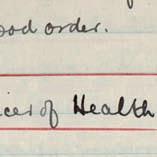 ood order.
icer of Health